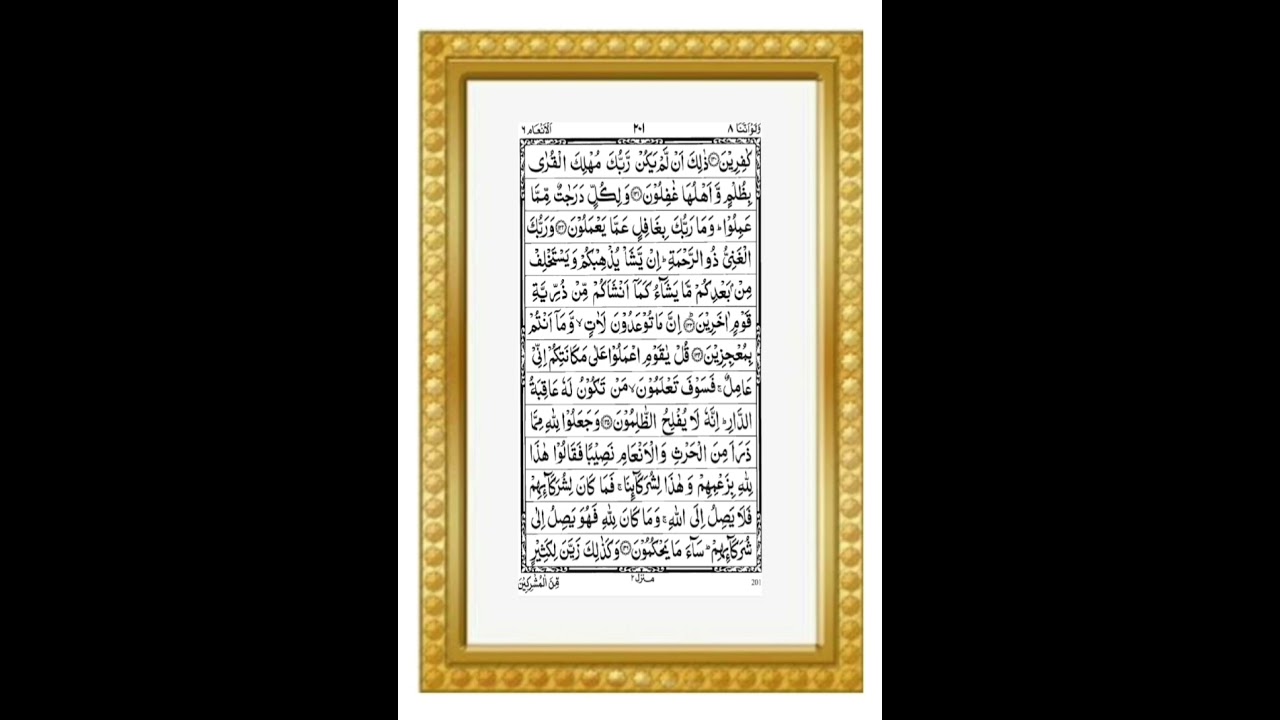 وَلَوْاَنَّنَا ٨ ٢٠١ اَلْاَنْعَام ٦
كٰفِرِيْنَ ۝١٣٠ ذٰلِكَ اَنْ لَّمْ يَكُنْ رَّبُّكَ مُهْلِكَ الْقُرٰى
بِظُلْمٍ وَّ اَهْلُهَا غٰفِلُوْنَ ۝١٣١ وَ لِكُلٍّ دَرَجٰتٌ مِّمَّا
عَمِلُوْا ؕ وَ مَا رَبُّكَ بِغَافِلٍ عَمَّا يَعْمَلُوْنَ ۝١٣٢ وَ رَبُّكَ
الْغَنِيُّ ذُو الرَّحْمَةِ ؕ اِنْ يَّشَاْ يُذْهِبْكُمْ وَ يَسْتَخْلِفْ
مِنْۢ بَعْدِكُمْ مَّا يَشَآءُ كَمَاۤ اَنْشَاَكُمْ مِّنْ ذُرِّيَّةِ
قَوْمٍ اٰخَرِيْنَ ۝١٣٣ اِنَّ مَا تُوْعَدُوْنَ لَاٰتٍ ۙ وَّ مَاۤ اَنْتُمْ
بِمُعْجِزِيْنَ ۝١٣٤ قُلْ يٰقَوْمِ اعْمَلُوْا عَلٰى مَكَانَتِكُمْ اِنِّيْ
عَامِلٌ ۚ فَسَوْفَ تَعْلَمُوْنَ ۙ مَنْ تَكُوْنُ لَهٗ عَاقِبَةُ
الدَّارِ ؕ اِنَّهٗ لَا يُفْلِحُ الظّٰلِمُوْنَ ۝١٣٥ وَ جَعَلُوْا لِلّٰهِ مِمَّا
ذَرَاَ مِنَ الْحَرْثِ وَ الْاَنْعَامِ نَصِيْبًا فَقَالُوْا هٰذَا
لِلّٰهِ بِزَعْمِهِمْ وَ هٰذَا لِشُرَكَآئِنَا ۚ فَمَا كَانَ لِشُرَكَآئِهِمْ
فَلَا يَصِلُ اِلَى اللّٰهِ ۚ وَ مَا كَانَ لِلّٰهِ فَهُوَ يَصِلُ اِلٰى
شُرَكَآئِهِمْ ؕ سَآءَ مَا يَحْكُمُوْنَ ۝١٣٦ وَ كَذٰلِكَ زَيَّنَ لِكَثِيْرٍ
201 منزل ٢ مِّنَ الْمُشْرِكِيْنَ